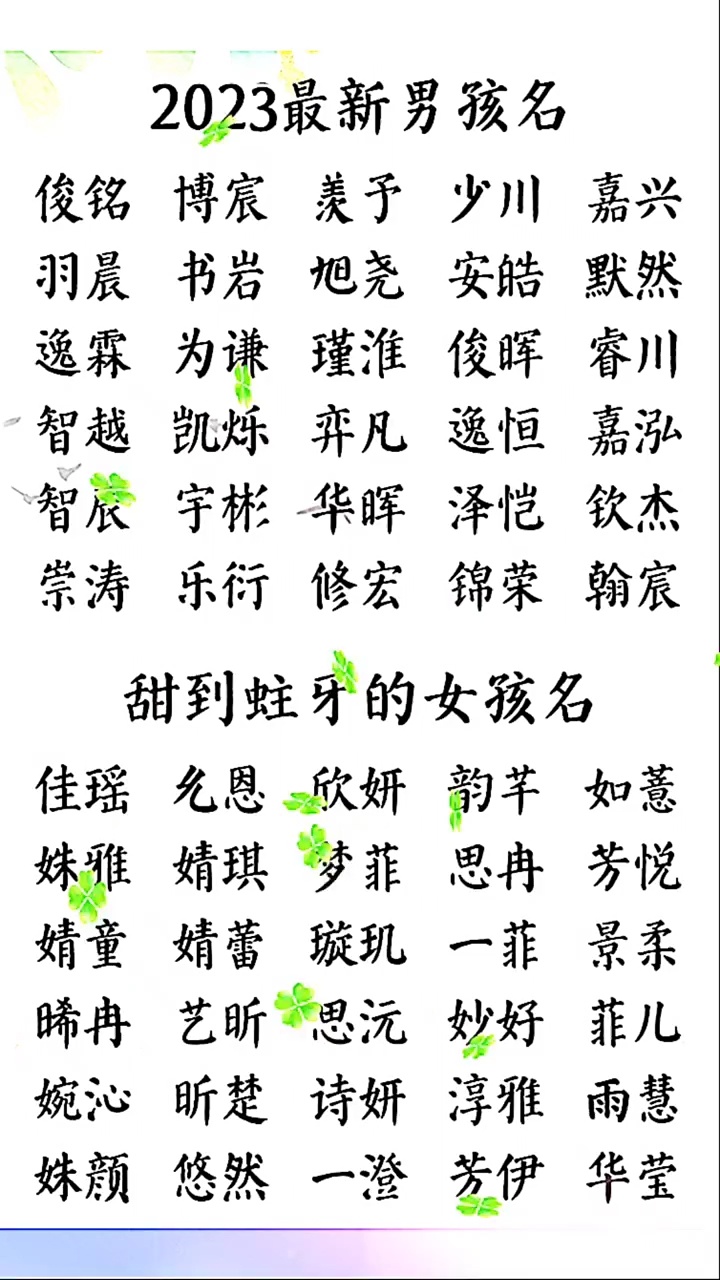 2023最新男孩名
俊铭 博宸 羡予 少川 嘉兴
羽晨 书岩 旭尧 安皓 默然
逸霖 为谦 瑾淮 俊晖 睿川
智越 凯烁 弈凡 逸恒 嘉泓
智辰 宇彬 华晖 泽恺 钦杰
崇涛 乐衍 修宏 锦荣 翰宸
甜到蛀牙的女孩名
佳瑶 允恩 欣妍 韵芊 如薏
姝雅 婧琪 梦菲 思冉 芳悦
婧童 婧蕾 璇玑 一菲 景柔
晞冉 艺昕 思沅 妙好 菲儿
婉沁 昕楚 诗妍 淳雅 雨慧
姝颜 悠然 一澄 芳伊 华莹